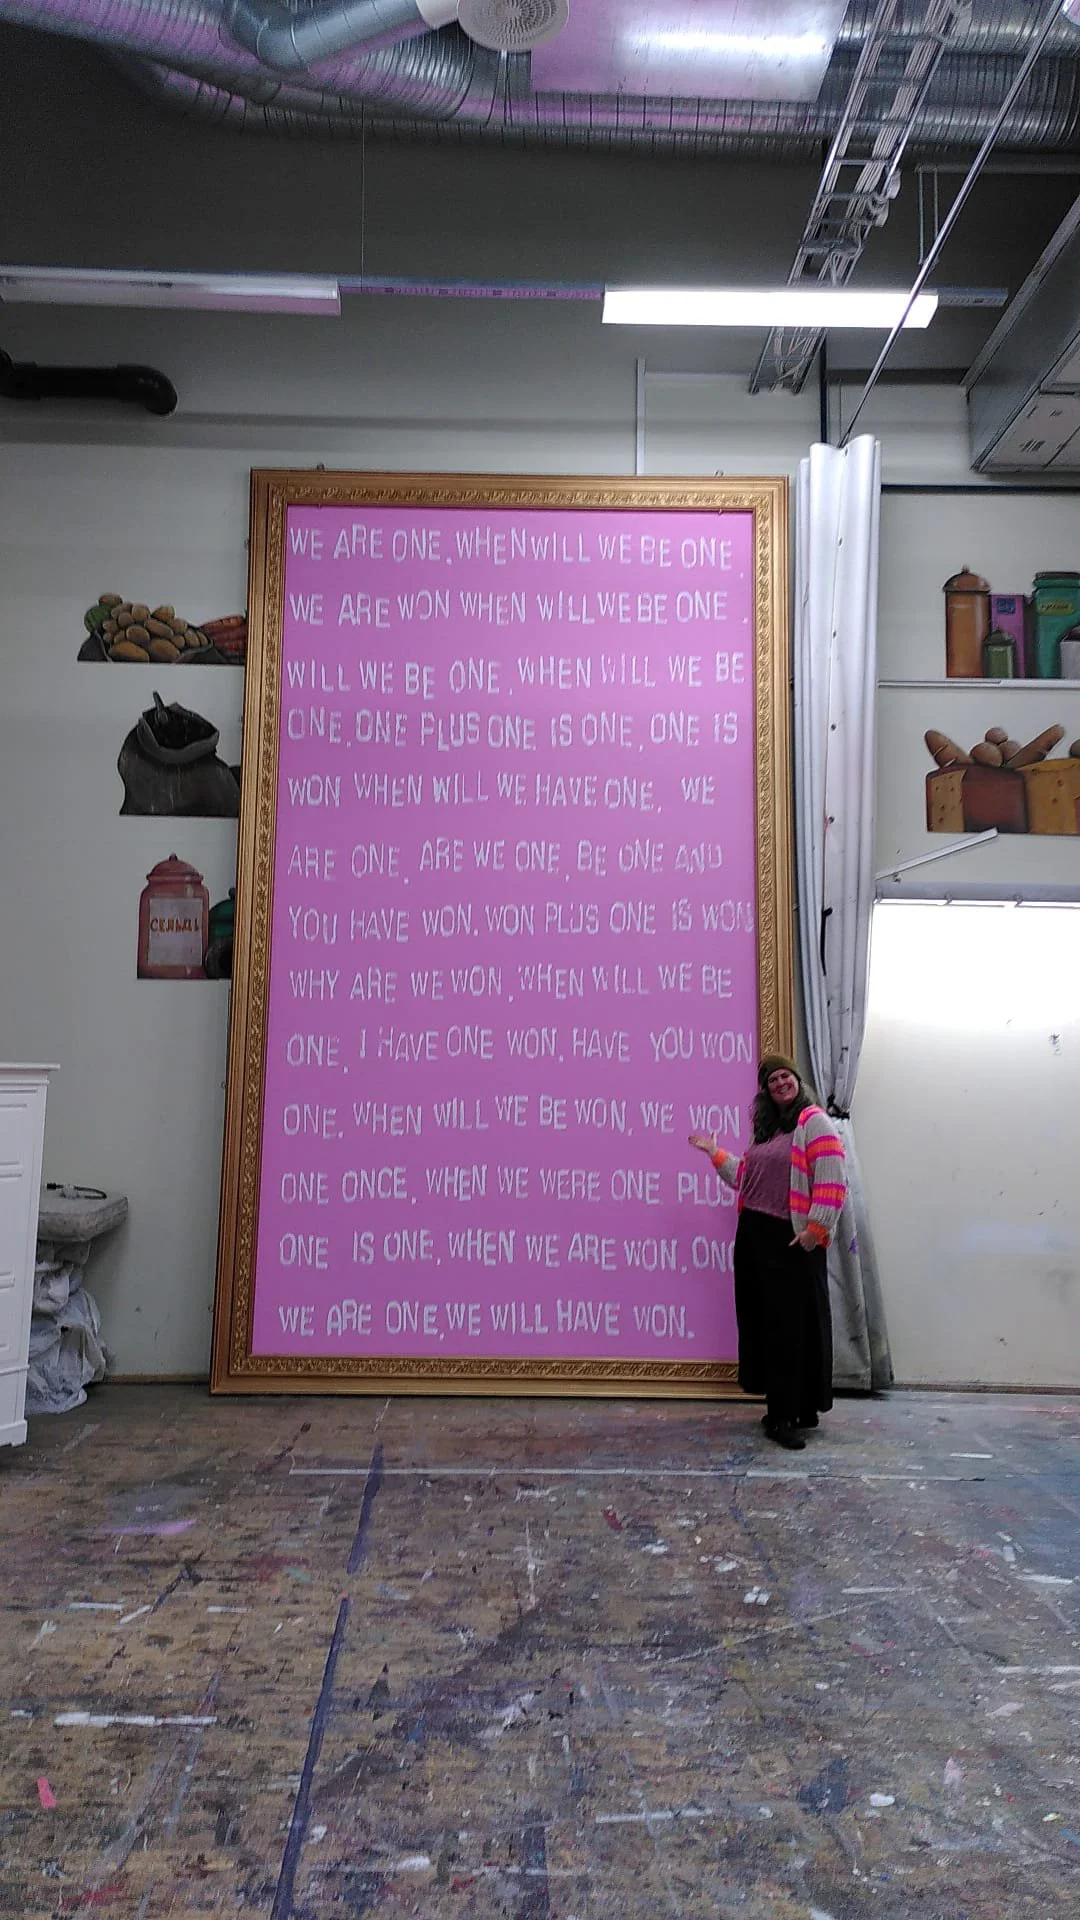 WE ARE ONE. WHEN WILL WE BE ONE.
WE ARE WON WHEN WILL WE BE ONE.
WILL WE BE ONE. WHEN WILL WE BE
ONE. ONE PLUS ONE IS ONE. ONE IS
WON WHEN WILL WE HAVE ONE. WE
ARE ONE. ARE WE ONE. BE ONE AND
YOU HAVE WON. WON PLUS ONE IS WON
WHY ARE WE WON. WHEN WILL WE BE
ONE. I HAVE ONE WON. HAVE YOU WON
ONE. WHEN WILL WE BE WON. WE WON
ONE ONCE. WHEN WE WERE ONE PLUS
ONE IS ONE. WHEN WE ARE WON.
WE ARE ONE, WE WILL HAVE WON.